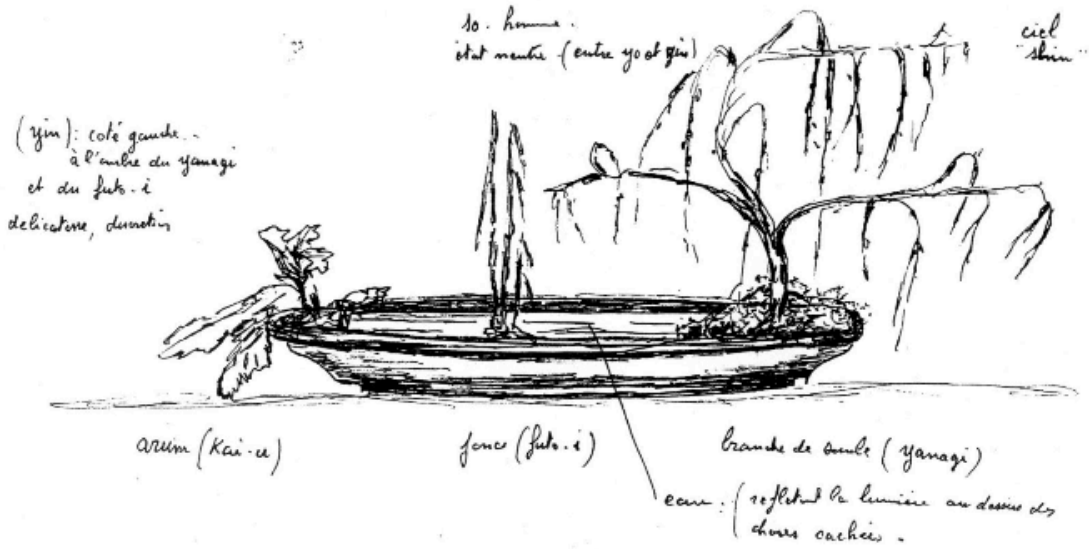 so. homme.
état neutre (entre yo et yin)
ciel
"shin"
(yin): coté gauche..
à l'ombre du yanagi
et du futo-i
delicatesse, discretion
arum (Kai-u)
jonc (futo-i)
branche de saule (yanagi)
eau: (refletant la lumière au dessus des
choses cachées.